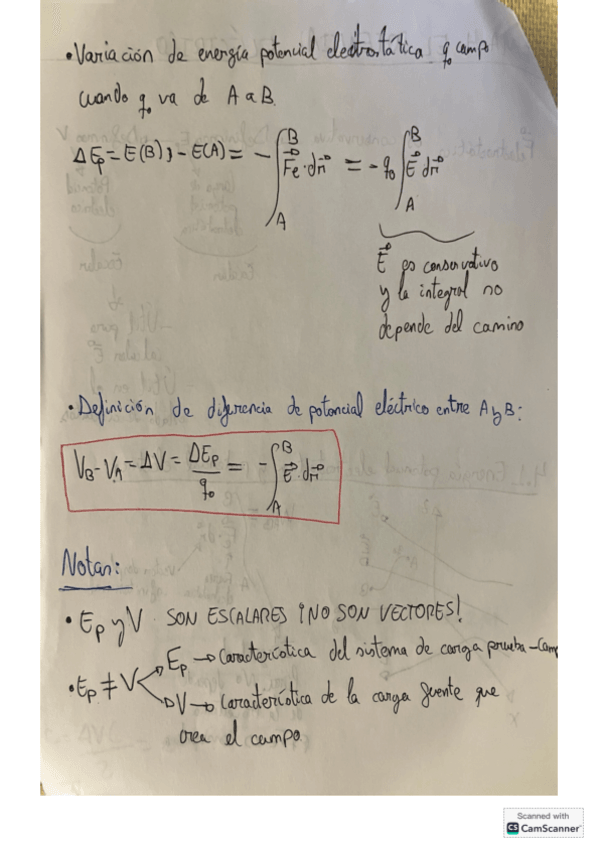 • Variación de energía potencial electrostática q₀ campo
cuando q₀ va de A a B.
ΔEp = E(B) - E(A) = - ∫_A^B F⃗e · dr⃗ = - q₀ ∫_A^B E⃗ dr⃗
E⃗ es conservativo
y la integral no
depende del camino
• Definición de diferencia de potencial eléctrico entre A y B:
V_B - V_A = ΔV = ΔEp / q₀ = - ∫_A^B E⃗ · dr⃗
Notas:
• Ep y V SON ESCALARES ¡NO SON VECTORES!
• Ep ≠ V
Ep → Característica del sistema de carga prueba - Cam
V → Característica de la carga fuente que
crea el campo
Scanned with
CS CamScanner